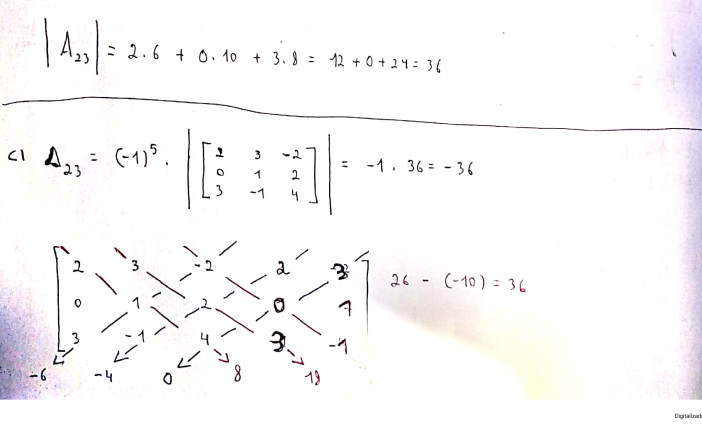 |A₂₃| = 2.6 + 0.10 + 3.8 = 12 + 0 + 24 = 36
c) Δ₂₃ = (-1)⁵ . |[2 3 -2
0 1 2
3 -1 4]| = -1 . 36 = -36
2 3 -2 2 3 26 - (-10) = 36
0 1 2 0 1
3 -1 4 3 -1
-6 -4 0 8 18
Digitalizad